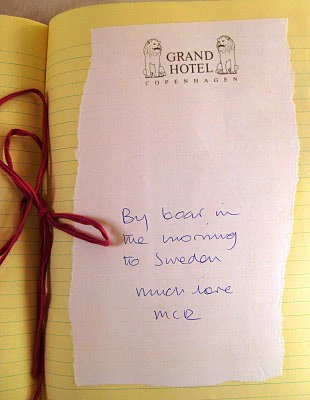 GRAND
HOTEL
COPENHAGEN
By boat in
the morning
to Sweden
much love
MCR